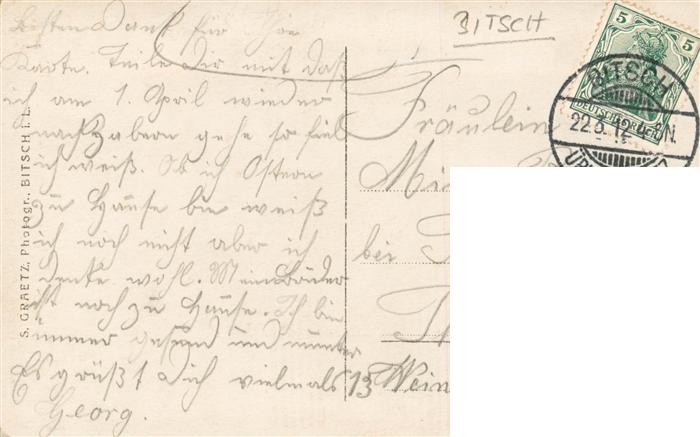 Besten Dank für Ihre
Karte. Teile Dir mit daß
ich am 1. April wieder
nach Zabern gehe so fiel
ich weiß. Ob ich Ostern
zu Hause bin weiß
ich noch nicht aber ich
denke wohl. Mein Brüder
ist noch zu Hause. Ich bin
immer gesund und munter
Es grüßt Dich vielmals
Georg.
S. GRAETZ, Photogr., BITSCH i. L.
BITSCH
5 5
DEUTSCHES REICH
BITSCH
22.3.12
Fräulein
bei
13 Wein